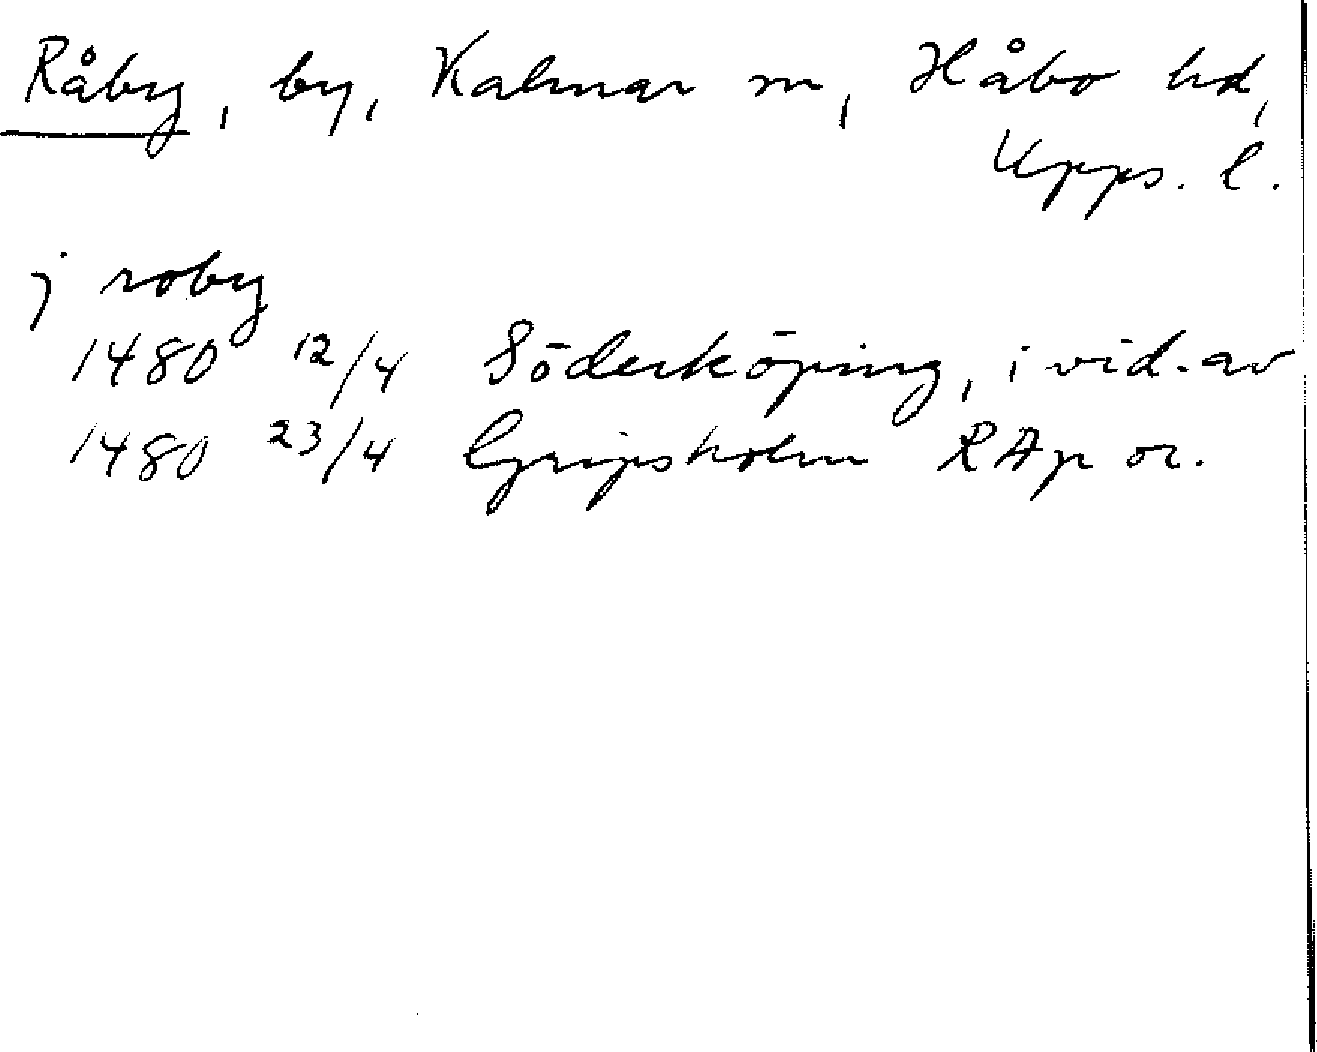 Råby, by, Kalmar sn, Håbo hd,
Upps. l.
j roby
1480 12/4 Söderköping, i vid. av
1480 23/4 Gripsholm RAp or.